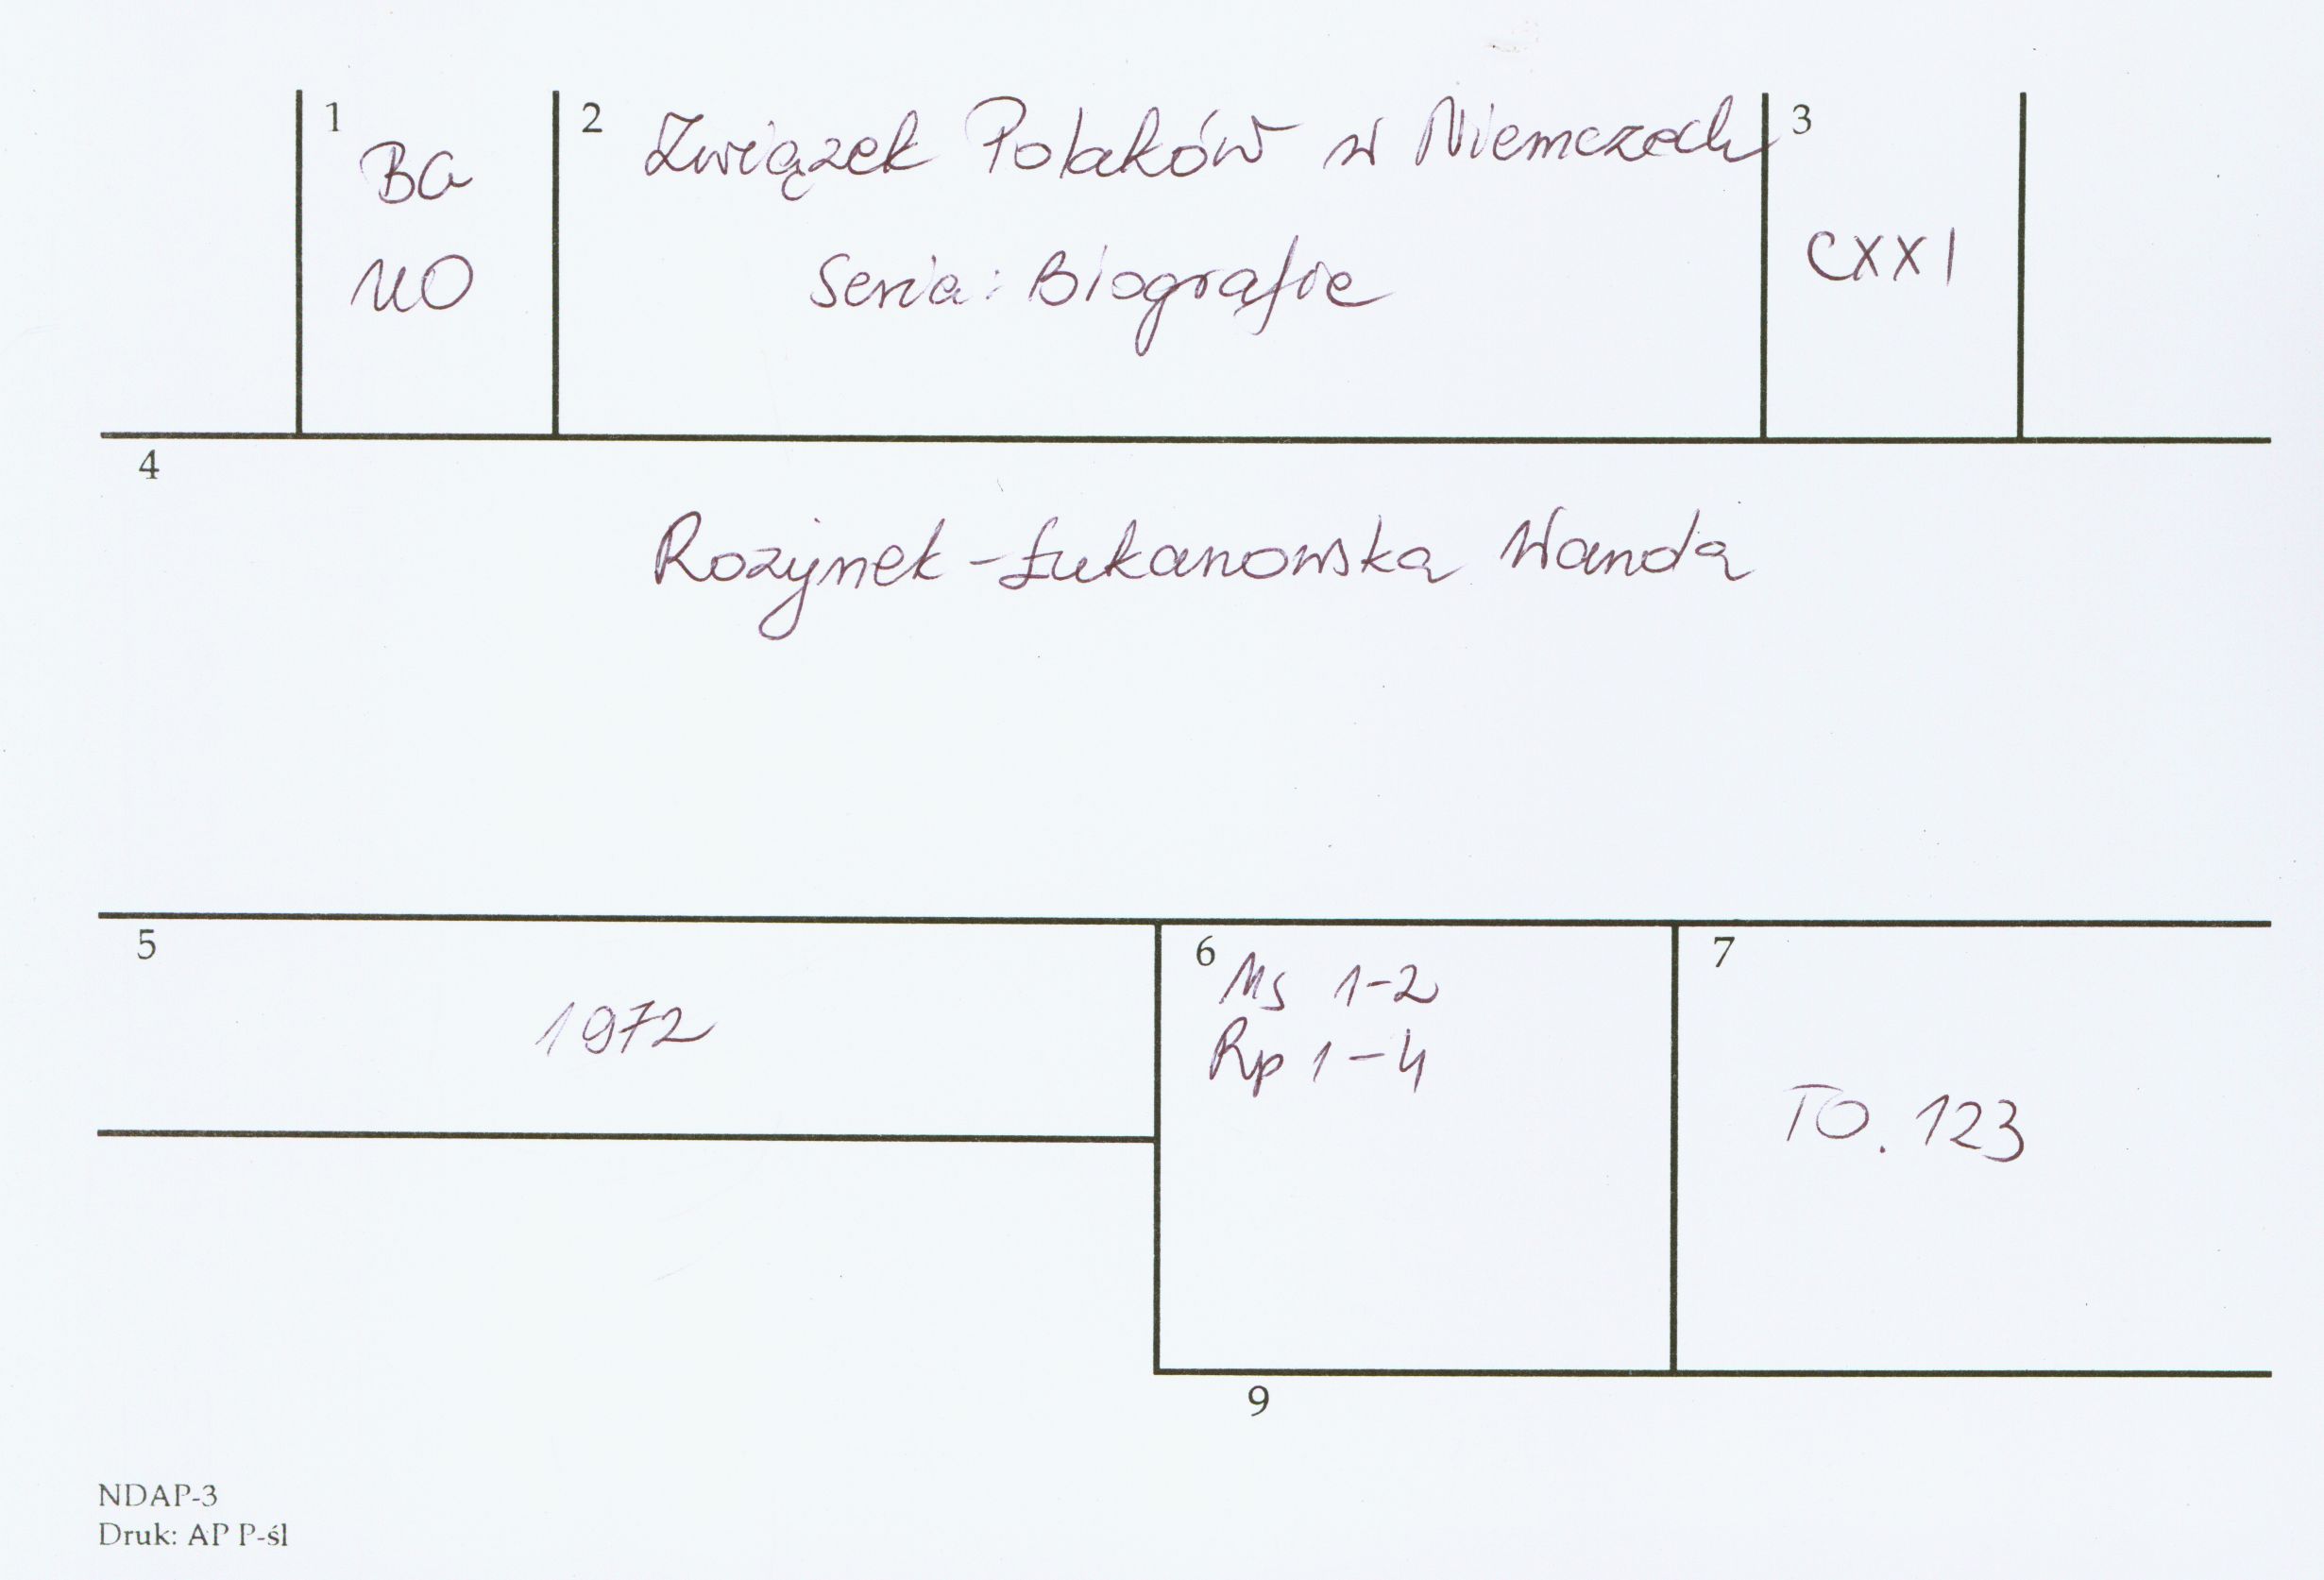 1
BG
UO
2 Związek Polaków w Niemczech
Seria: Biografie
3
CXXI
4
Rozynek-Łukanowska Wanda
5
1972
6 Ms 1-2
Rp 1-4
7
TO. 123
9
NDAP-3
Druk: AP P-śl